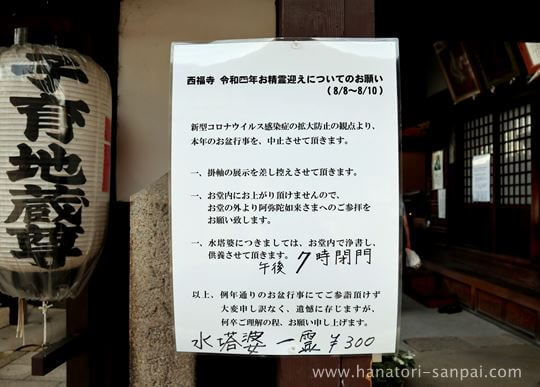 子育地蔵尊
西福寺 令和四年お精霊迎えについてのお願い
(8/8～8/10)
新型コロナウイルス感染症の拡大防止の観点より、
本年のお盆行事を、中止させて頂きます。
一、掛軸の展示を差し控えさせて頂きます。
一、お堂内にお上がり頂けませんので、
お堂の外より阿弥陀如来さまへのご参拝を
お願い致します。
一、水塔婆につきましては、お堂内で浄書し、
供養させて頂きます。
午後 7時閉門
以上、例年通りのお盆行事にてご参詣頂けず
大変申し訳なく、遺憾に存じますが、
何卒ご理解の程、お願い申し上げます。
水塔婆 一霊 ¥300
www.hanatori-sanpai.com